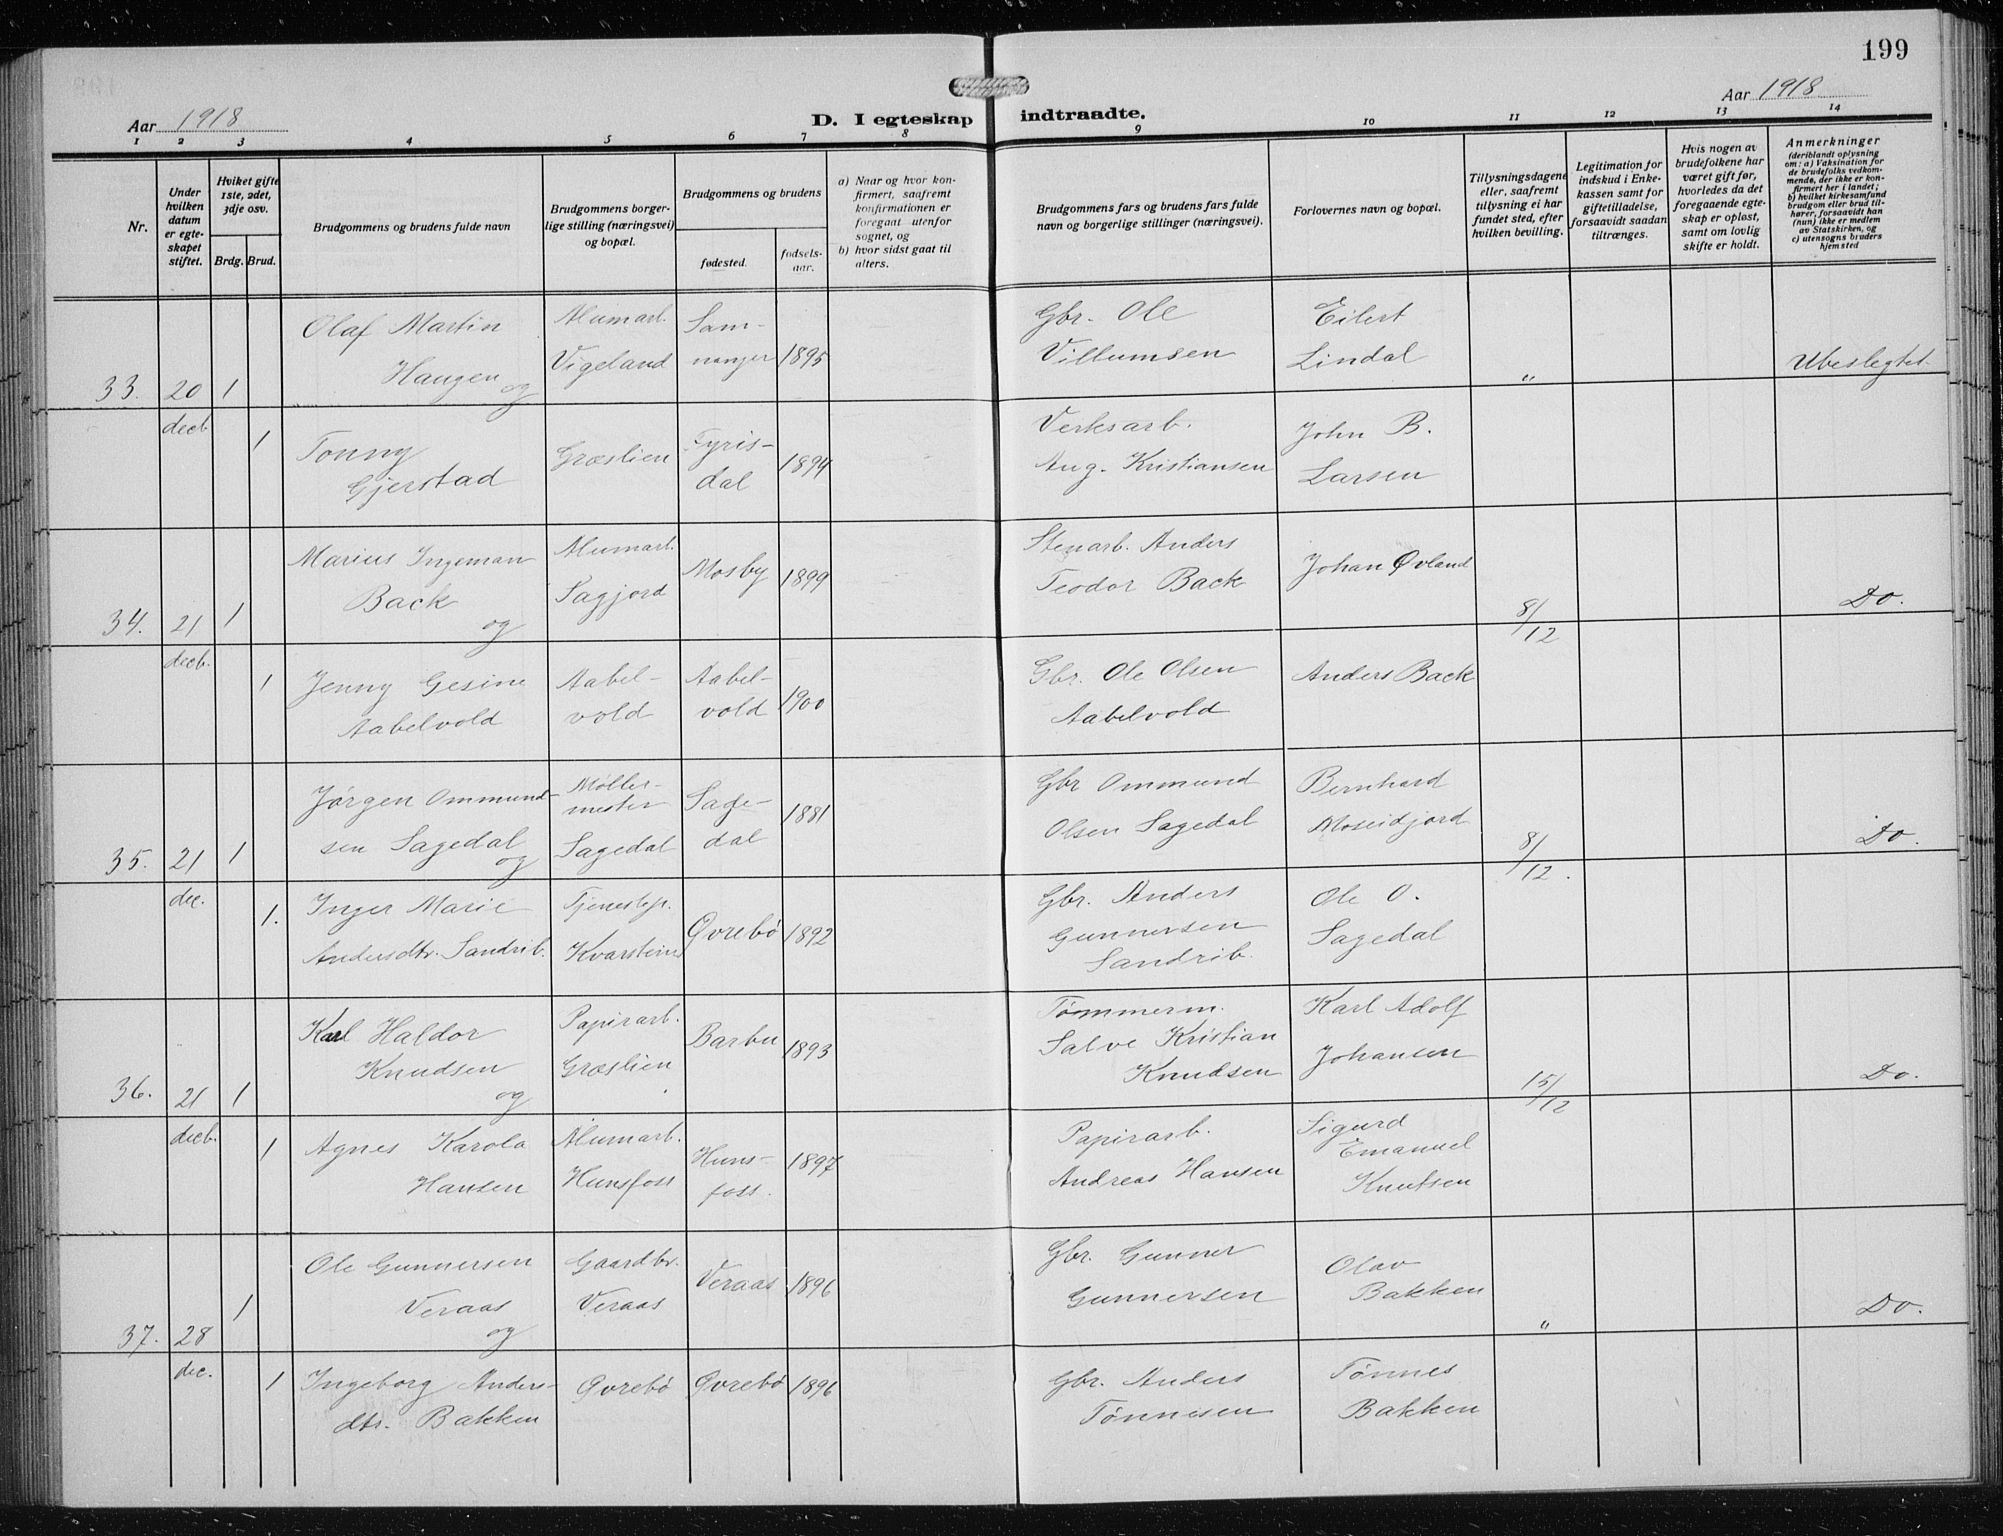 199
Aar 1918
D. I egteskap indtraadte.
Aar 1918
1 2 3 4 5 6 7 8 9 10 11 12 13 14
Nr.
Under hvilken datum er egteskapet stiftet.
Hvilket gifte 1ste, 2det, 3dje osv.
Brdg. Brud.
Brudgommens og brudens fulde navn
Brudgommens borgerlige stilling (næringsvei) og bopæl.
Brudgommens og brudens
fødested.
fødselsaar.
a) Naar og hvor konfirmert, saafremt konfirmationen er foregaat utenfor sognet, og
b) hvor sidst gaat til alters.
Brudgommens fars og brudens fars fulde navn og borgerlige stillinger (næringsvei).
Forlovernes navn og bopæl.
Tillysningsdagene eller, saafremt tillysning ei har fundet sted, efter hvilken bevilling.
Legitimation for indskud i Enkekassen samt for giftetilladelse, forsaavidt saadan tiltrænges.
Hvis nogen av brudefolkene har været gift før, hvorledes da det foregaaende egteskap er opløst, samt om lovlig skifte er holdt.
Anmerkninger
(deriblandt oplysning om: a) Vaksination for de brudefolks vedkommende, der ikke er konfirmert her i landet; b) hvilket kirkesamfund brudgom eller brud tilhører, forsaavidt han (hun) ikke er medlem av Statskirken, og c) utensogns bruders hjemsted
33. 20 decb 1
Olaf Martin Haugen og
Alumarb. Vigeland
Samnanger 1895
Gbr. Ole Villumsen
Eilert Lindal
"
Ubeslegtet
1
Tonny Gjerstad
Græslien
Fyrisdal 1899
Verksarb. Aug. Kristiansen
John B. Larsen
34. 21 decb. 1
Marius Ingeman Back og
Alumarb. Sagjord
Mosby 1899
Stenarb. Anders Teodor Back
Johan Øvland
8/12
Do.
1
Jenny Gesine Aabelvold
Aabelvold
Aabelvold 1900
Gbr. Ole Olsen Aabelvold
Anders Back
35. 21 dec. 1
Jørgen Ommundsen Sagedal og
Møllermester Sagedal
Sagedal 1881
Gbr Ommund Olsen Sagedal
Bernhard Moseidjord
8/12.
Do.
1.
Inger Marie Andersdtr. Sandrib.
Tjenestep. Kvarstein
Øvrebö 1892
Gbr. Anders Gunnersen Sandrib.
Ole O. Sagedal
36. 21 decb. 1
Karl Haldor Knudsen og
Papirarb. Græslien
Barbu 1893
Tømmerm. Salve Kristian Knudsen
Karl Adolf Johansen
15/12
Do.
1
Agnes Karola Hansen
Alumarb. Hunsfoss
Hunsfoss. 1897
Papirarb. Andreas Hansen
Sigurd Emanuel Knutsen
37. 28 dec. 1
Ole Gunnersen Veraas og
Gaardbr. Veraas
Veraas 1896
Gbr. Gunner Gunnersen
Olav Bakken
"
Do.
1
Ingeborg Andersdtr. Bakken
Øvrebö
Øvrebö 1896
Gbr. Anders Tønnesen
Tønnes Bakken